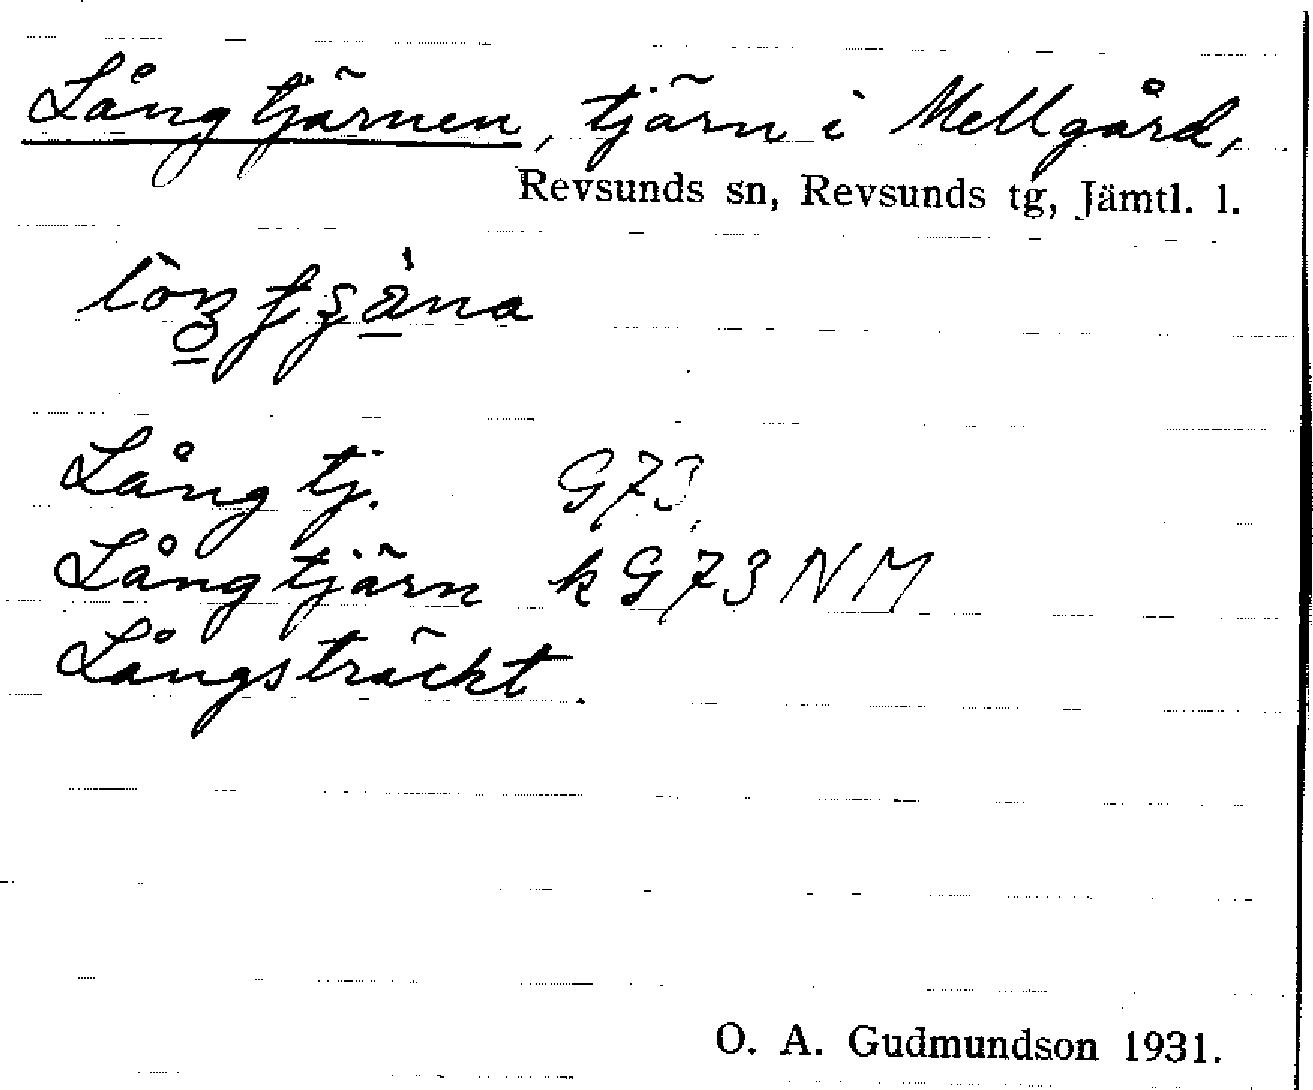 Långtjärnen, tjärn i Mellgård,
Revsunds sn, Revsunds tg, Jämtl. l.
Långtj. G73
Långtjärn kG73NM
Långsträckt.
O. A. Gudmundson 1931.